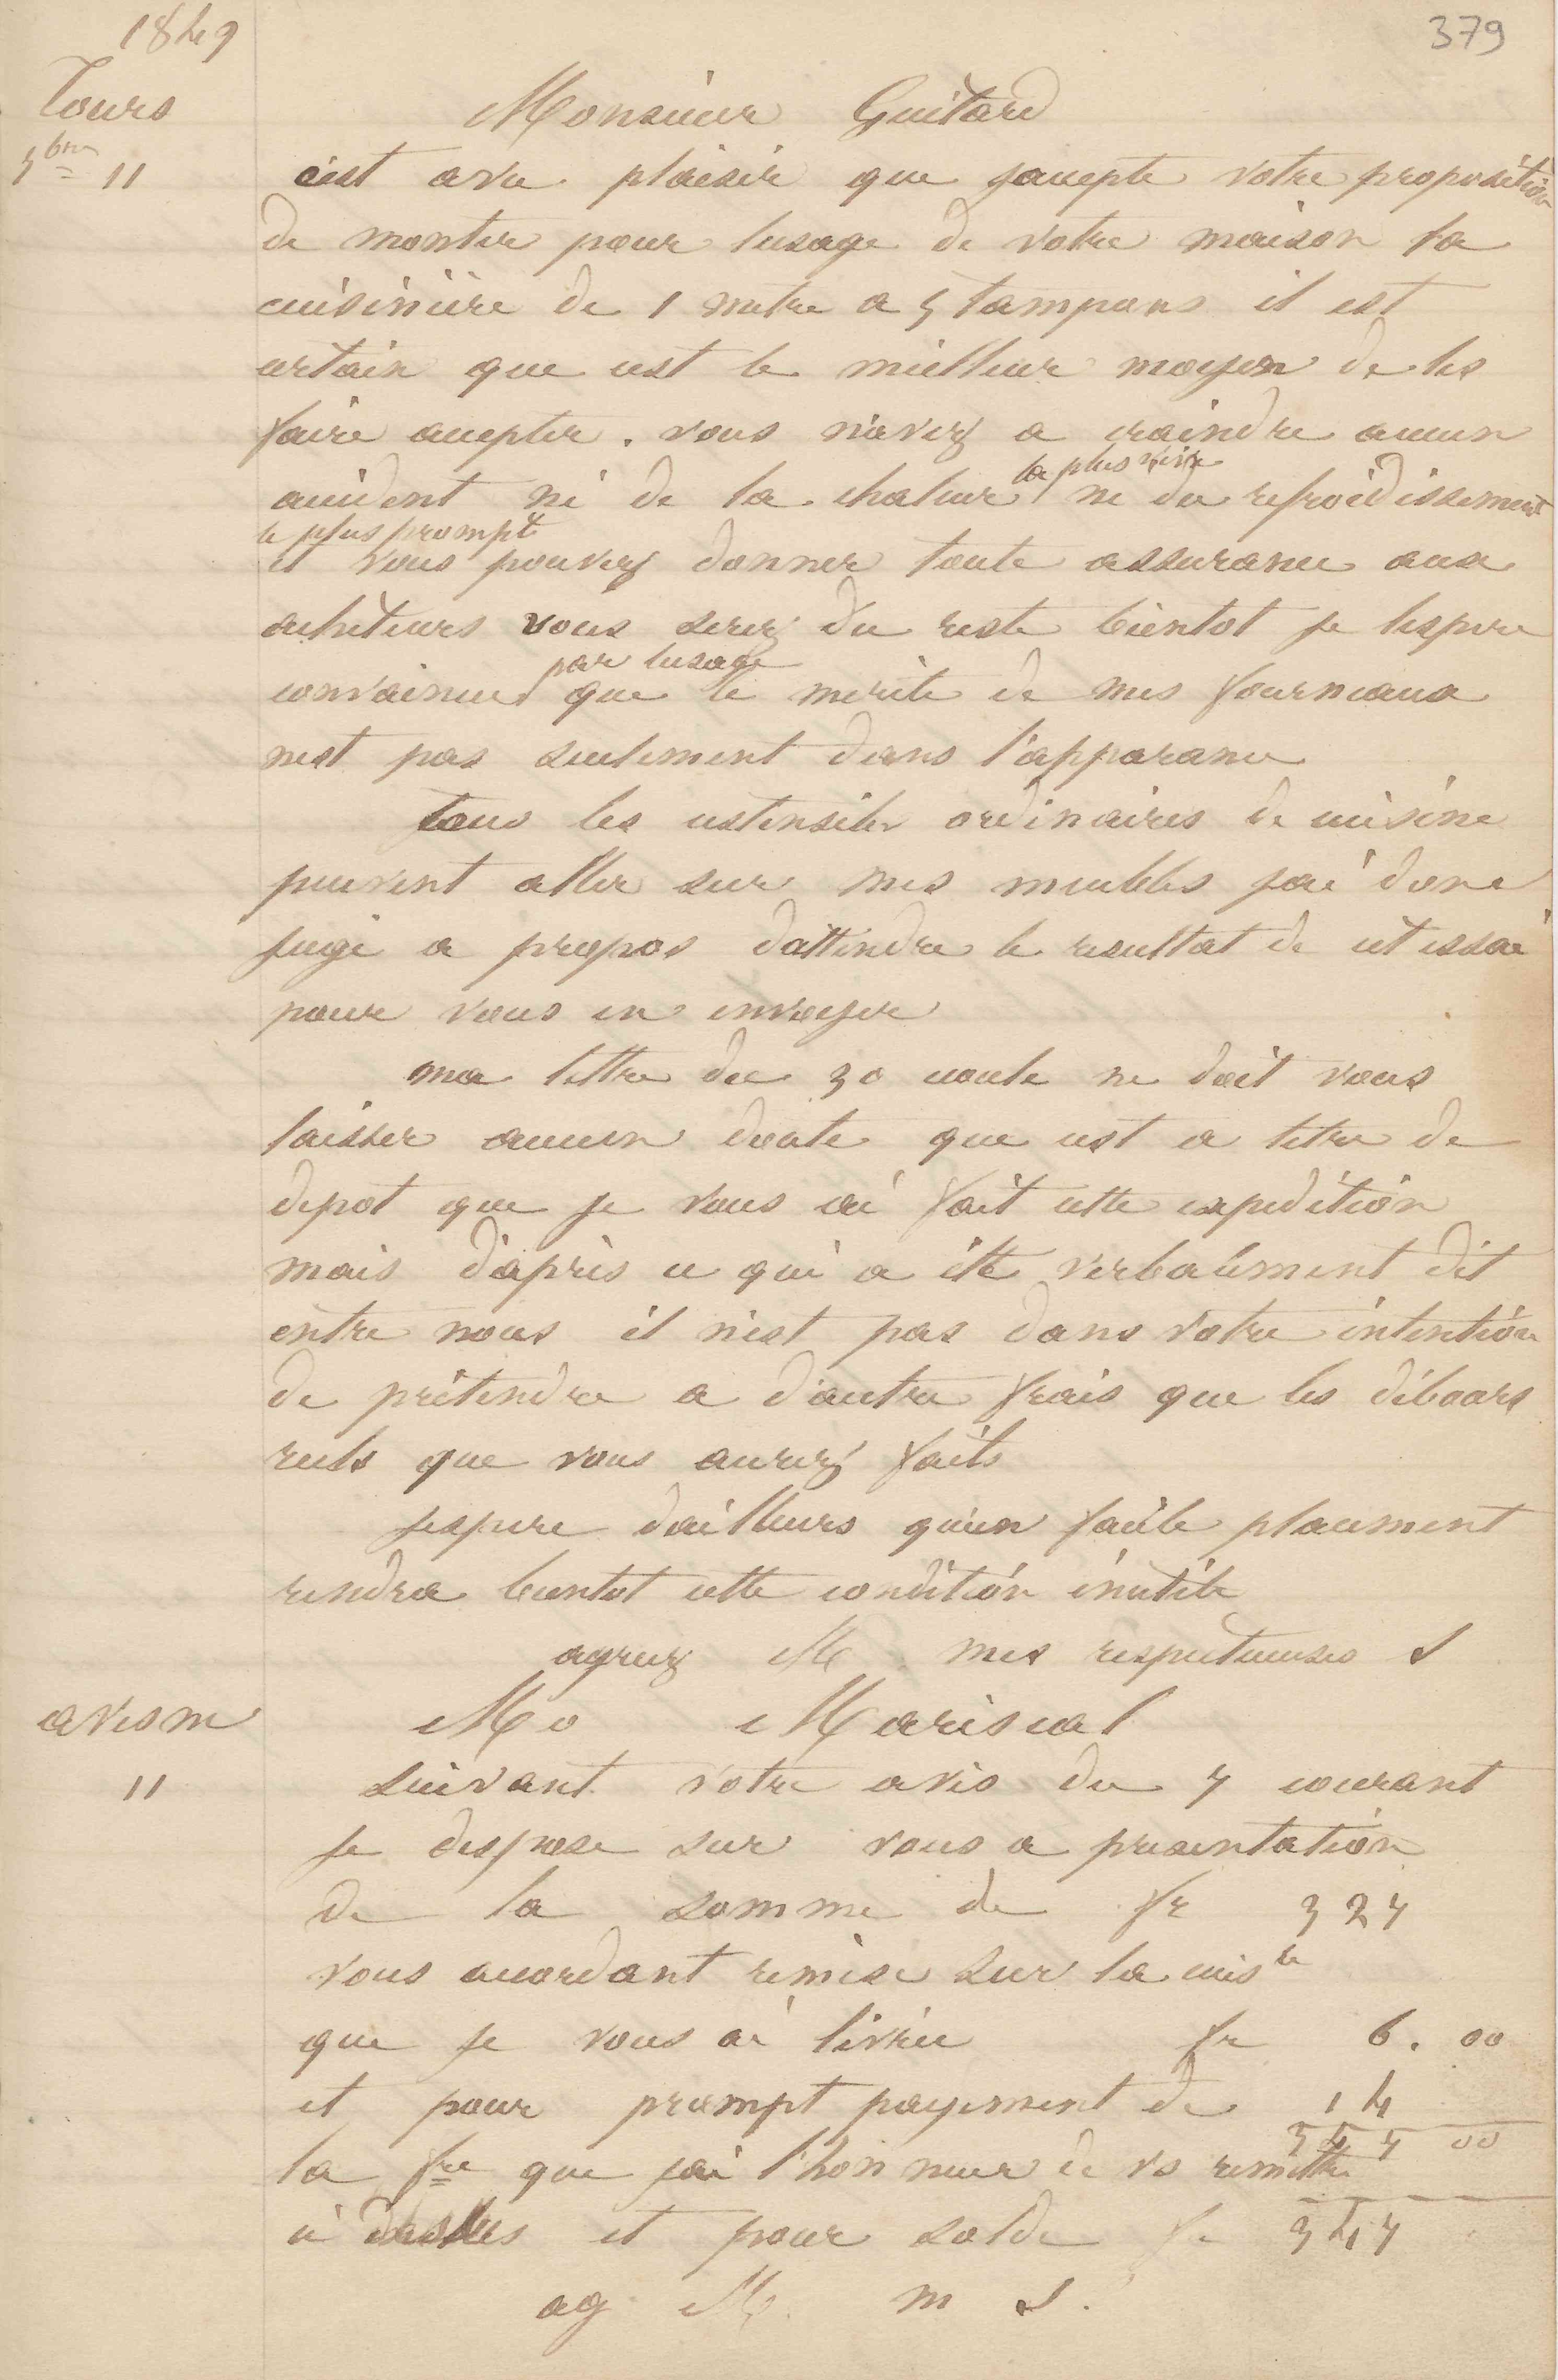 1849
379
Tours
Monsieur Guitard
11
c'est avec plaisir que jaccepte votre proposition
de monter pour lusage de votre maison la
cuisinière de 1 metre a 5 tampons il est
certain que cest le meilleur moyen de les
faire accepter. vous n'avez a craindre aucun
la plus vive
accident ni de la chaleur ni du refroidissement
le plus prompt
et vous pouvez donner toute assurance aux
acheteurs vous serez du reste bientot je lespere
par lusage
convaincu que le merite de mes fourneaux
nest pas seulement dans l'apparance
tous les ustensiles ordinaires de cuisine
peuvent aller sur mes meubles jai donc
jugé a propos dattendre le resultat de cet essai
pour vous en envoyer
ma lettre du 30 écoulé ne doit vous
laisser aucun doute que cest a titre de
depot que je vous ai fait cette expedition
mais d'après ce qui a été verbalement dit
entre nous il n'est pas dans votre intention
de prétendre a d'autre frais que les débours
reels que vous aurez faits
jespere dailleurs qu'un facile placement
rendra bientot cette condition inutile
agreez M. mes respectueuses S
avesm Mo Mariscal
11 suivant votre avis du 7 courant
je dispose sur vous a presentation
de la somme de fr 327
vous accordant remise sur la cuis
que je vous ai livrée fr 6.00
et pour prompt payement de 14
347 00
la fre que jai l'honneur de vs remettre
ci et pour solde fr 347
ag M. m S.